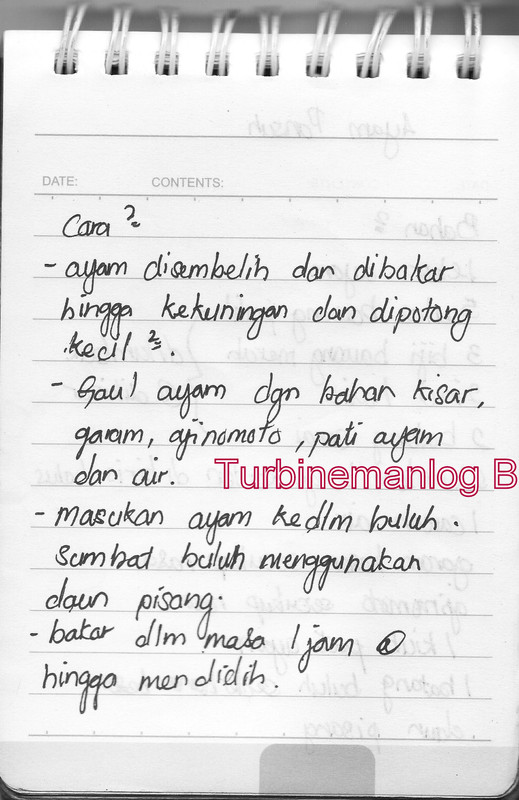 DATE: CONTENTS:
Cara 2=
- ayam disembelih dan dibakar
hingga kekuningan dan dipotong
kecil 2=.
- Gaul ayam dgn bahan kisar,
garam, ajinomoto, pati ayam
dan air.
Turbinemanlog B
- masukan ayam kedlm buluh.
Sumbat buluh menggunakan
daun pisang.
- bakar dlm masa 1 jam @
hingga mendidih.